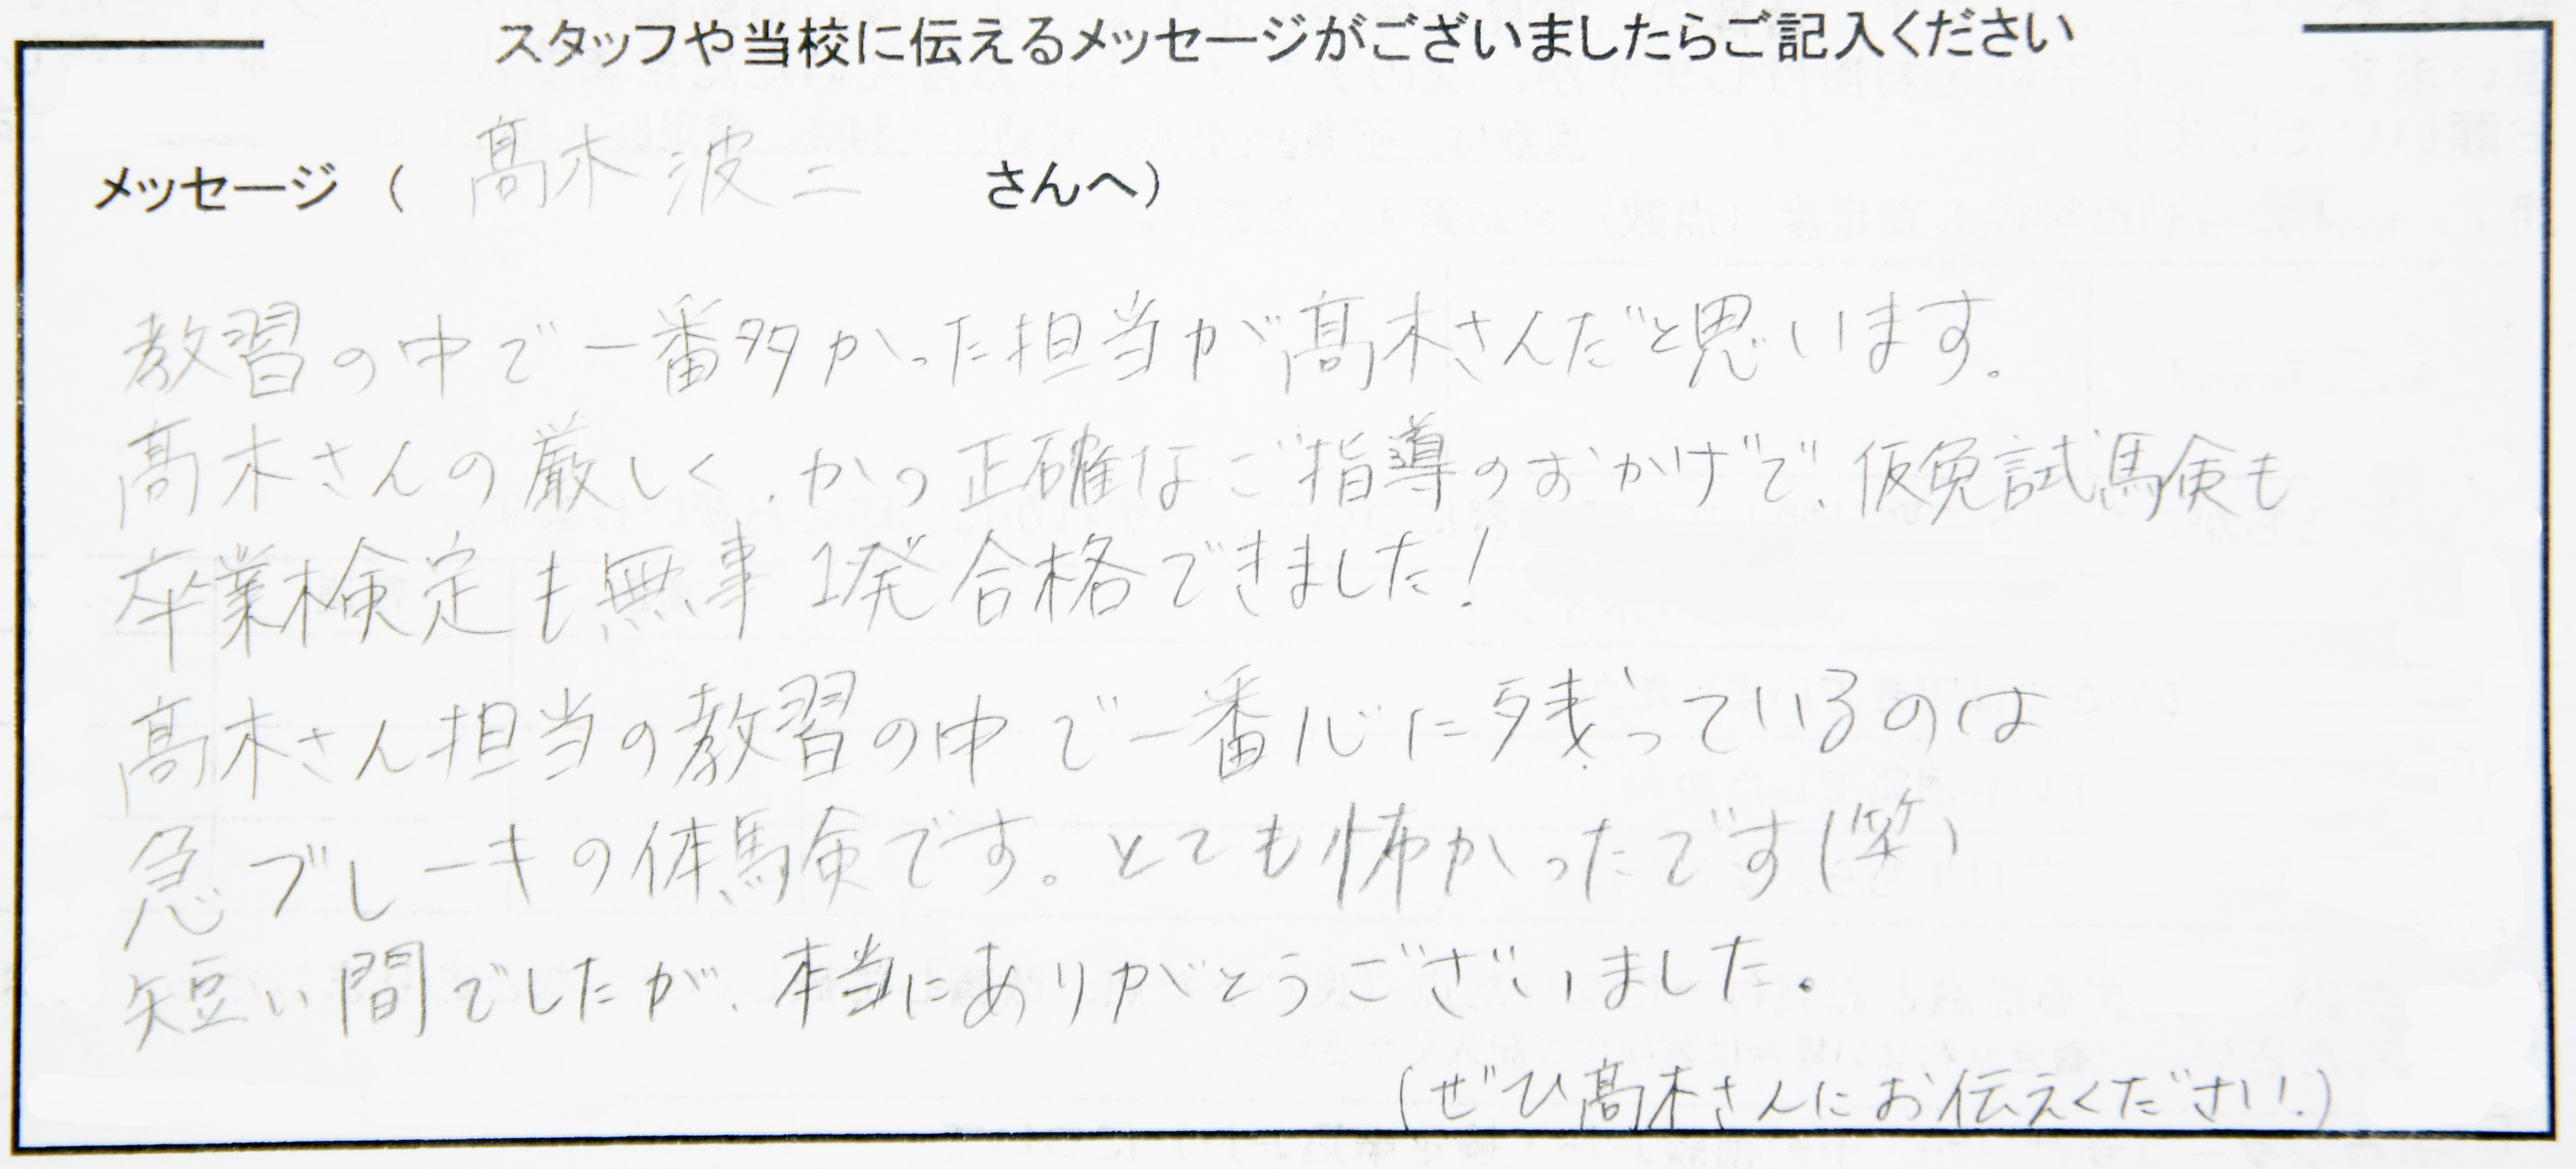 スタッフや当校に伝えるメッセージがございましたらご記入ください
メッセージ（ 髙木 波二 さんへ）
教習の中で一番多かった担当が髙木さんだと思います。
髙木さんの厳しく、かつ正確なご指導のおかげで、仮免試験も
卒業検定も無事1発合格できました！
髙木さん担当の教習の中で一番心に残っているのは
急ブレーキの体験です。とても怖かったです(笑)
短い間でしたが、本当にありがとうございました。
(ぜひ髙木さんにお伝えください。)